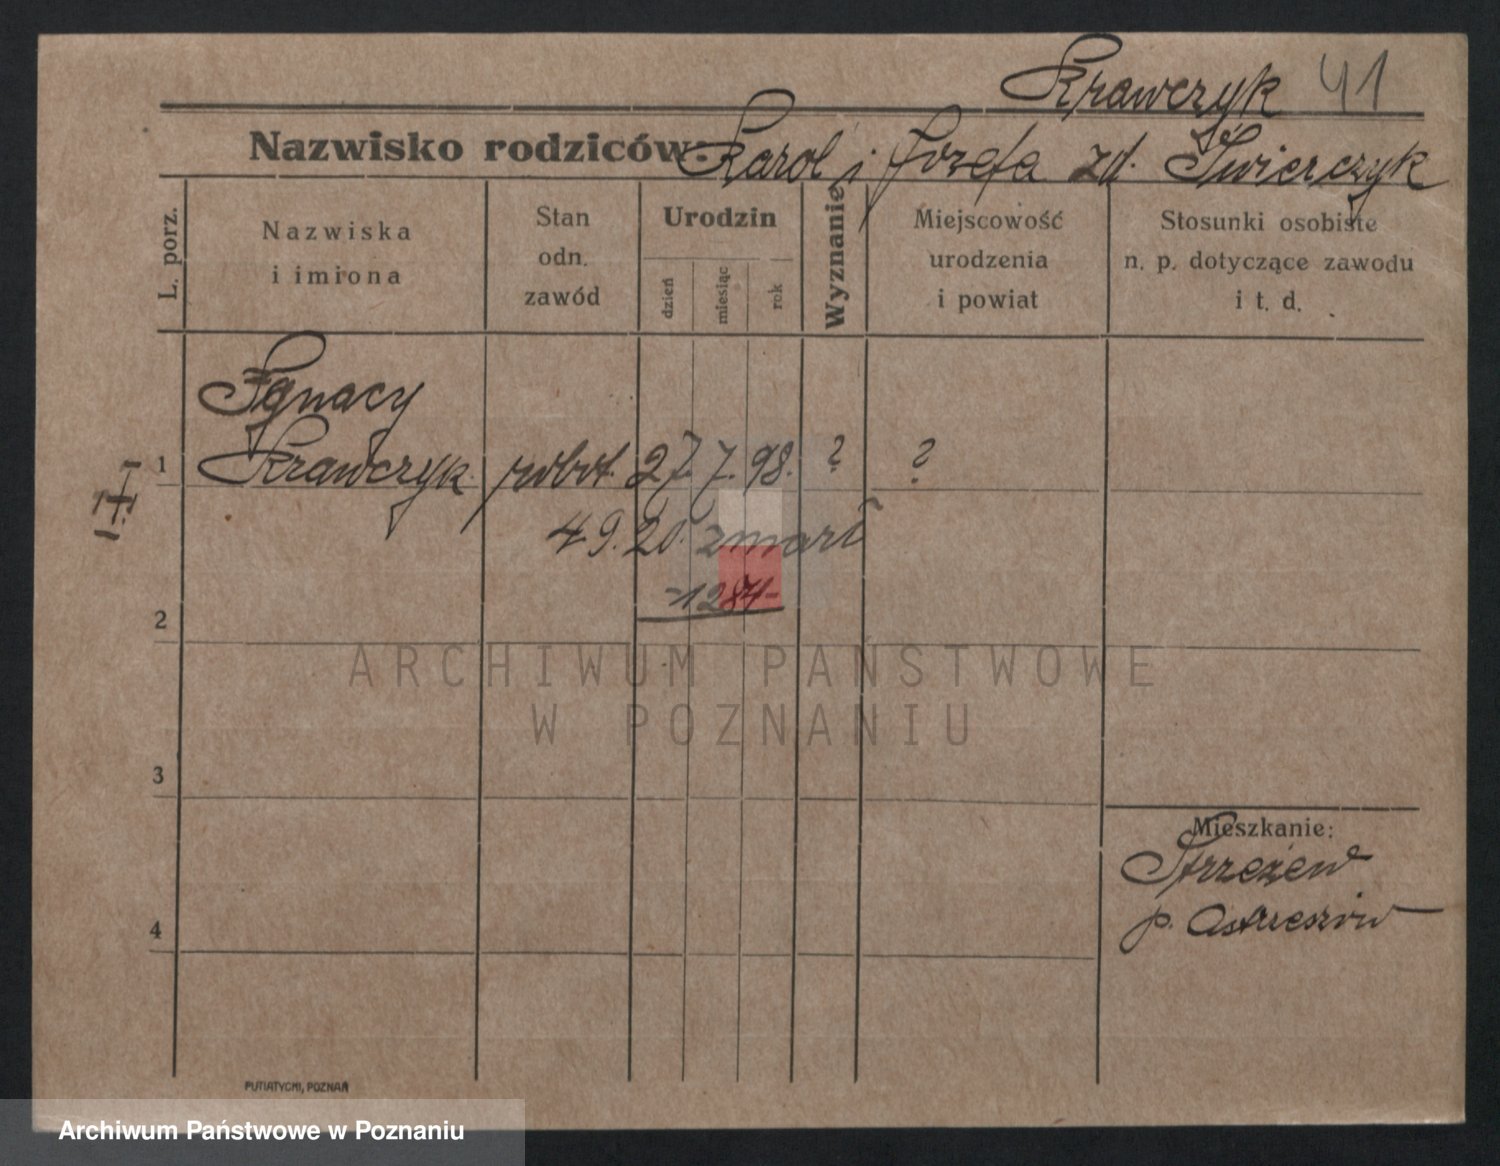 Krawczyk 41
Nazwisko rodziców. Karol i Józefa zd. Świerczyk
L. porz.
Nazwiska
i imiona
Stan
odn.
zawód
Urodzin
dzień
miesiąc
rok
Wyznanie
Miejscowość
urodzenia
i powiat
Stosunki osobiste
n. p. dotyczące zawodu
i t. d.
Ignacy
1 Krawczyk robot. 27. 7. 98. ? ?
4. 9. 20. zmarł
-1284-
2
ARCHIWUM PAŃSTWOWE
W POZNANIU
3
Mieszkanie:
Strzeżew
p. Ostrzeszów
4
PUTIATYCKI, POZNAŃ
Archiwum Państwowe w Poznaniu